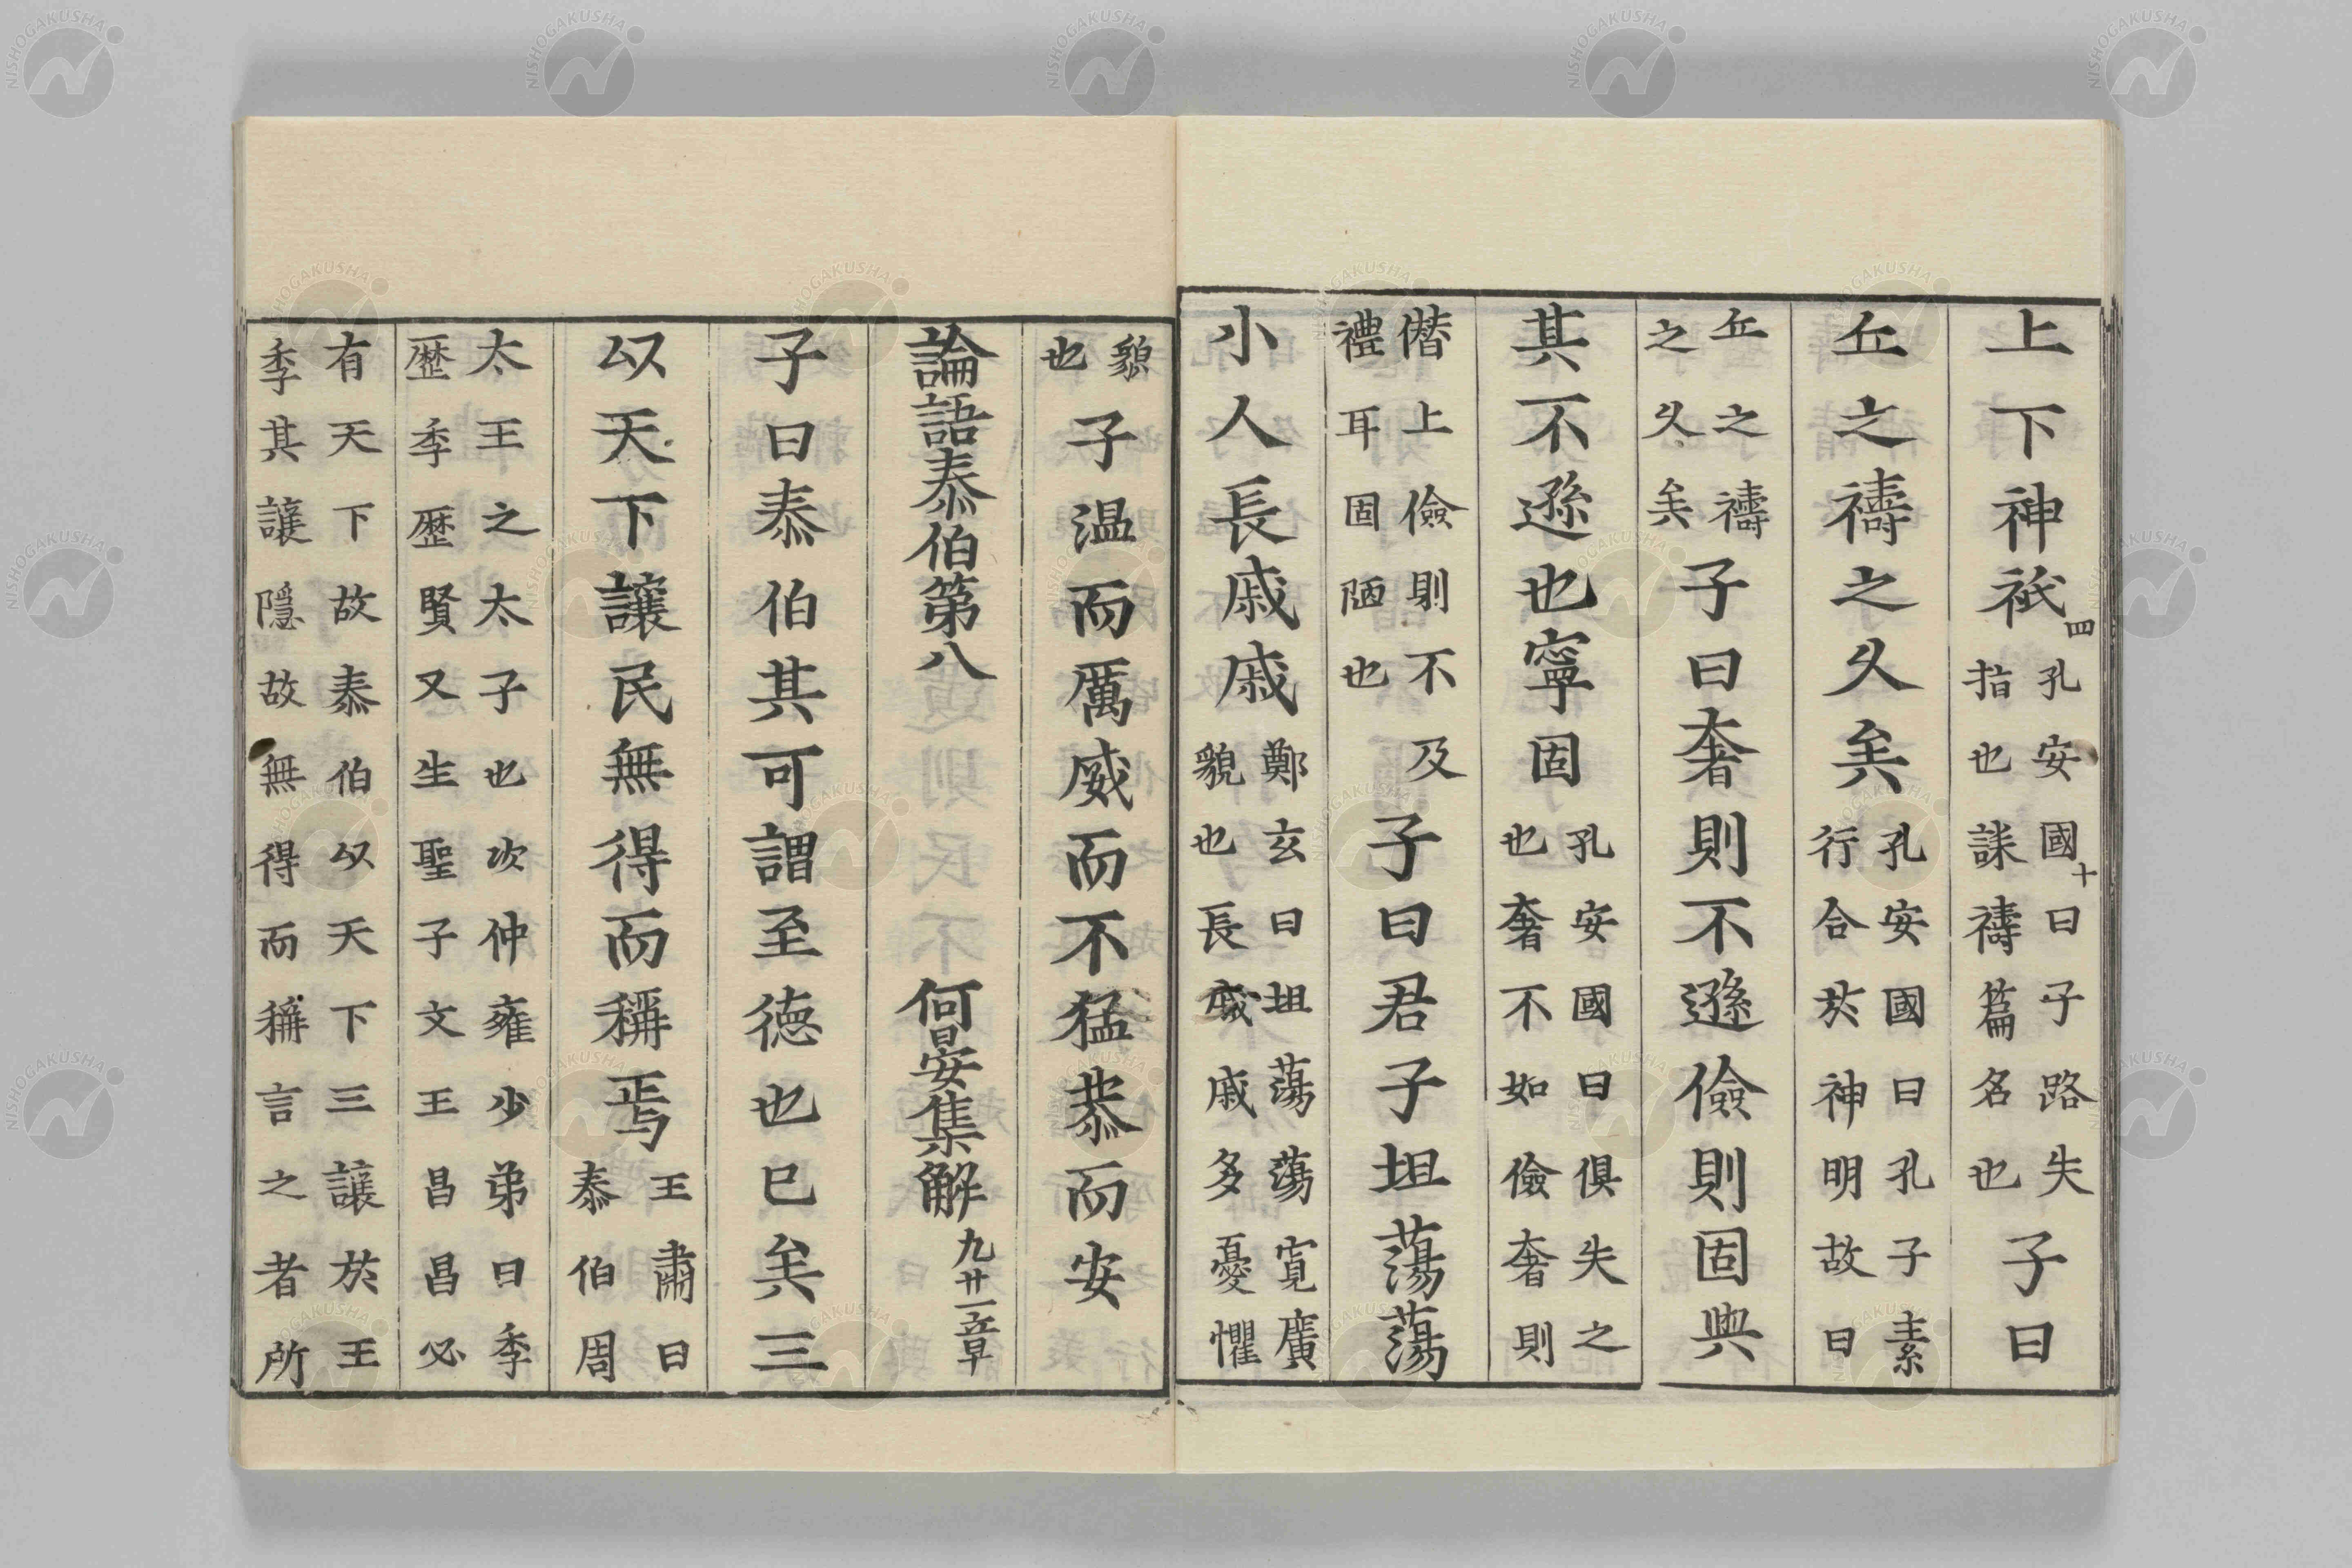 上下神祇孔安國曰子路失
指也誄禱篇名也子曰
丘之禱之久矣孔安國曰孔子素
行合於神明故曰
丘之禱
之久矣子曰奢則不遜儉則固與
其不遜也寧固孔安國曰俱失之
也奢不如儉奢則
僭上儉則不及
禮耳固陋也子曰君子坦蕩蕩
小人長戚戚鄭玄曰坦蕩蕩寬廣
貌也長戚戚多憂懼
四十
貌
也子温而厲威而不猛恭而安
論語泰伯第八 何晏集解 凡廿一章
子曰泰伯其可謂至德也已矣三
以天下讓民無得而稱焉王肅曰
泰伯周
太王之太子也次仲雍少弟曰季
歷季歷賢又生聖子文王昌昌必
有天下故泰伯以天下三讓於王
季其讓隱故無得而稱言之者所
NISHOGAKUSHA